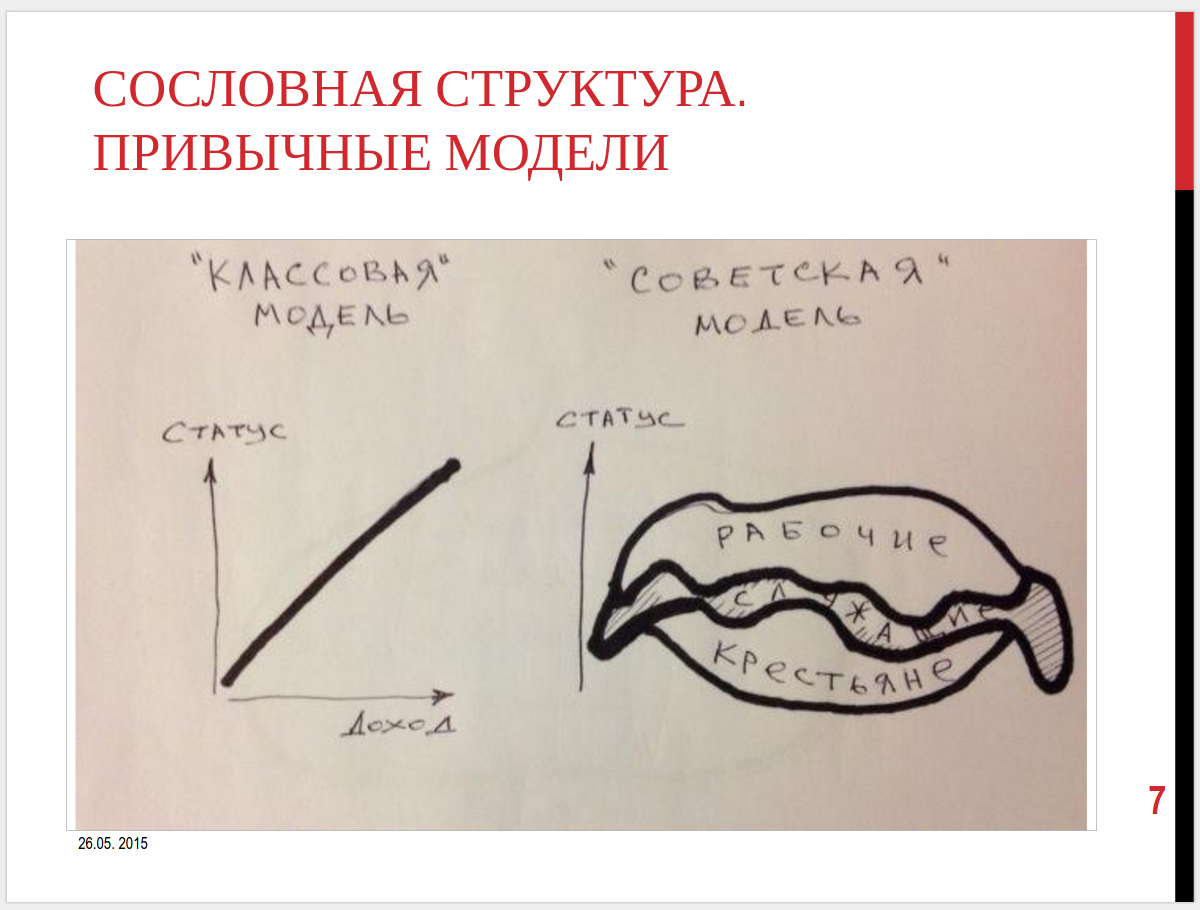 СОСЛОВНАЯ СТРУКТУРА.
ПРИВЫЧНЫЕ МОДЕЛИ
"КЛАССОВАЯ"
МОДЕЛЬ
СТАТУС
ДОХОД
"СОВЕТСКАЯ"
МОДЕЛЬ
СТАТУС
РАБОЧИе
СЛУЖАЩИе
КРеСТЬЯНе
7
26.05. 2015